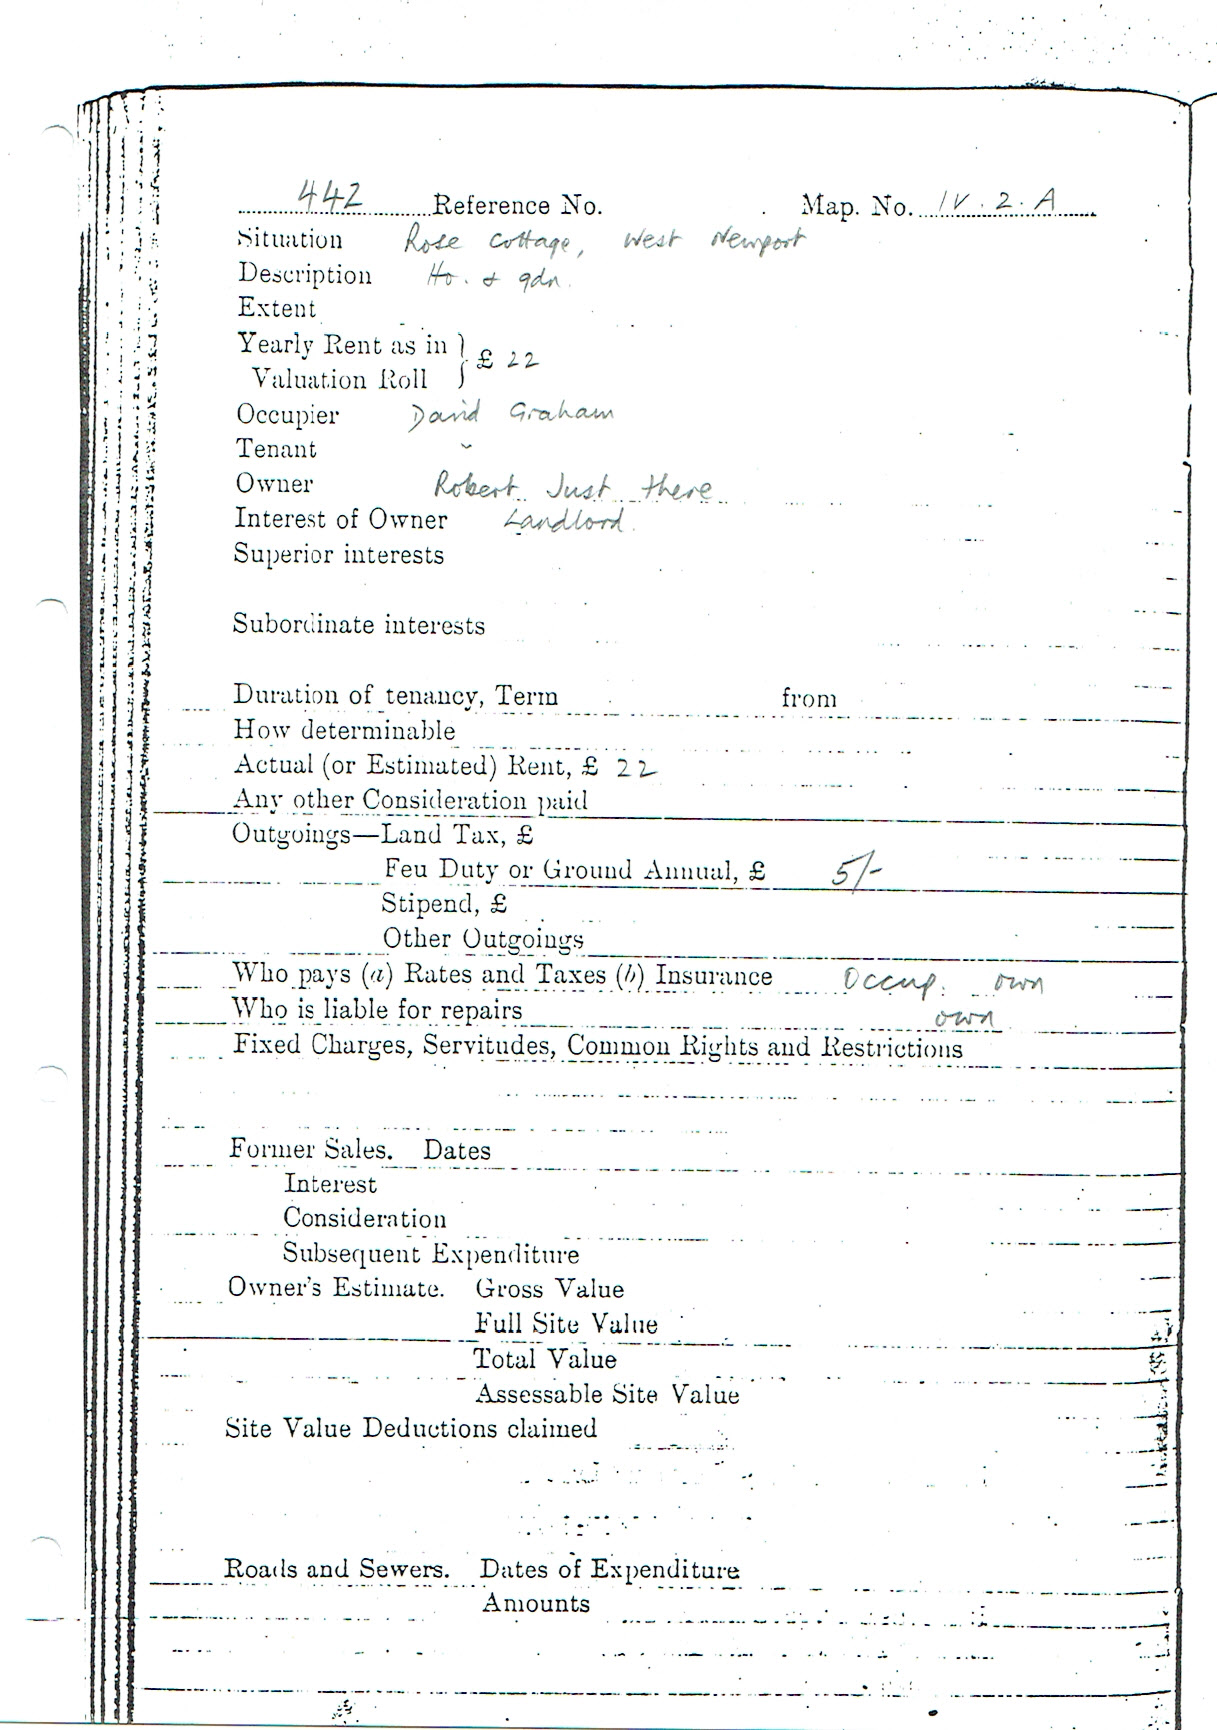 442 Reference No. Map. No. IV. 2. A
Situation Rose Cottage, West Newport
Description Ho. & gdn.
Extent
Yearly Rent as in
Valuation Roll } £ 22
Occupier David Graham
Tenant "
Owner Robert Just there
Interest of Owner Landlord.
Superior interests
Subordinate interests
Duration of tenancy, Term from
How determinable
Actual (or Estimated) Rent, £ 22
Any other Consideration paid
Outgoings—Land Tax, £
Feu Duty or Ground Annual, £ 5/-
Stipend, £
Other Outgoings
Who pays (a) Rates and Taxes (b) Insurance Occup. own
Who is liable for repairs own
Fixed Charges, Servitudes, Common Rights and Restrictions
Former Sales. Dates
Interest
Consideration
Subsequent Expenditure
Owner's Estimate. Gross Value
Full Site Value
Total Value
Assessable Site Value
Site Value Deductions claimed
Roads and Sewers. Dates of Expenditure
Amounts